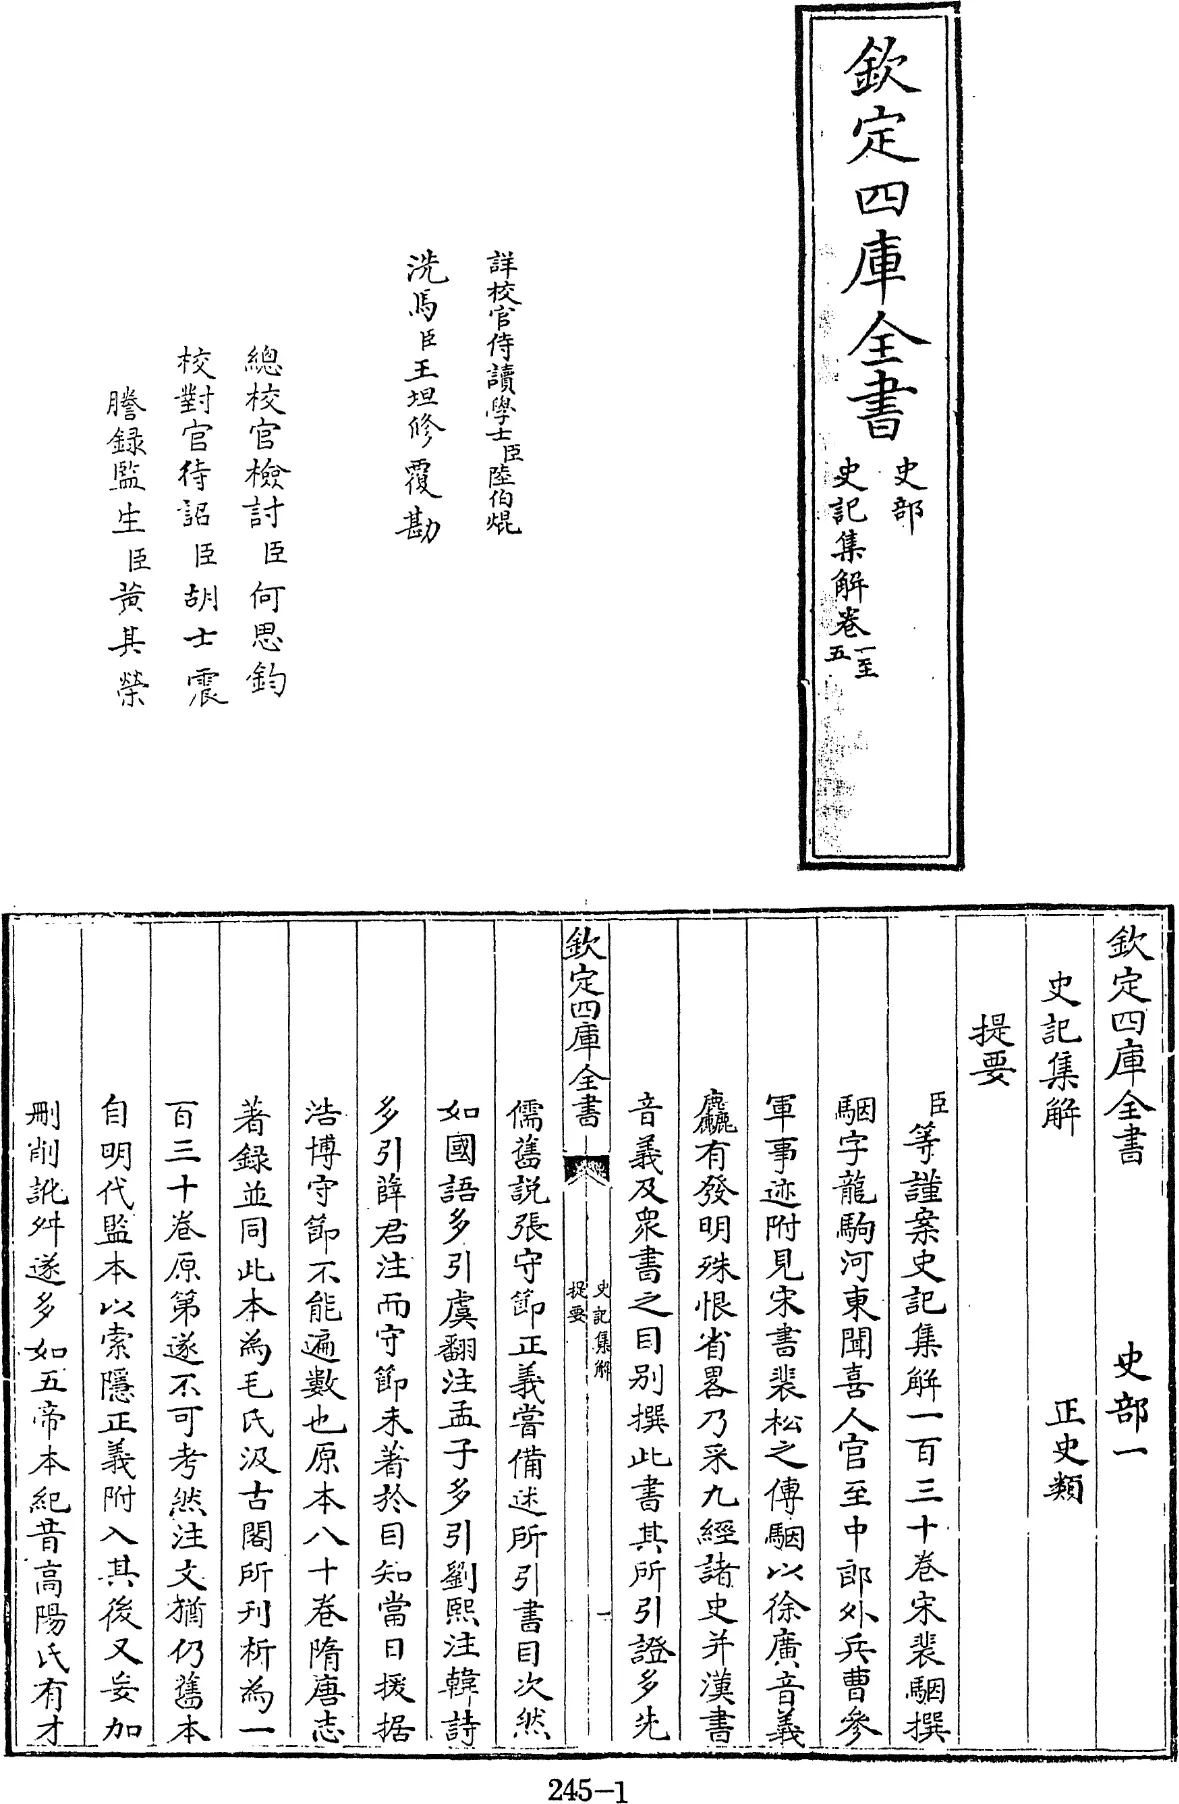 欽定四庫全書
史部
史記集解卷一至五
詳校官侍讀學士臣陸伯焜
洗馬臣王坦修覆勘
總校官檢討臣何思鈞
校對官待詔臣胡士震
謄録監生臣黃其榮
欽定四庫全書 史部一
史記集解 正史類
提要
臣等謹案史記集解一百三十卷宋裴駰撰
駰字龍駒河東聞喜人官至中郎外兵曹參
軍事迹附見宋書裴松之傳駰以徐廣音義
麤有發明殊恨省畧乃采九經諸史并漢書
音義及衆書之目别撰此書其所引證多先
欽定四庫全書
史記集解
提要
一
儒舊説張守節正義嘗備述所引書目次然
如國語多引虞翻注孟子多引劉熙注韓詩
多引薛君注而守節未著於目知當日援据
浩博守節不能遍數也原本八十卷隋唐志
著録並同此本為毛氏汲古閣所刋析為一
百三十卷原第遂不可考然注文猶仍舊本
自明代監本以索隱正義附入其後又妄加
刪削訛舛遂多如五帝本紀昔高陽氏有才
245-1